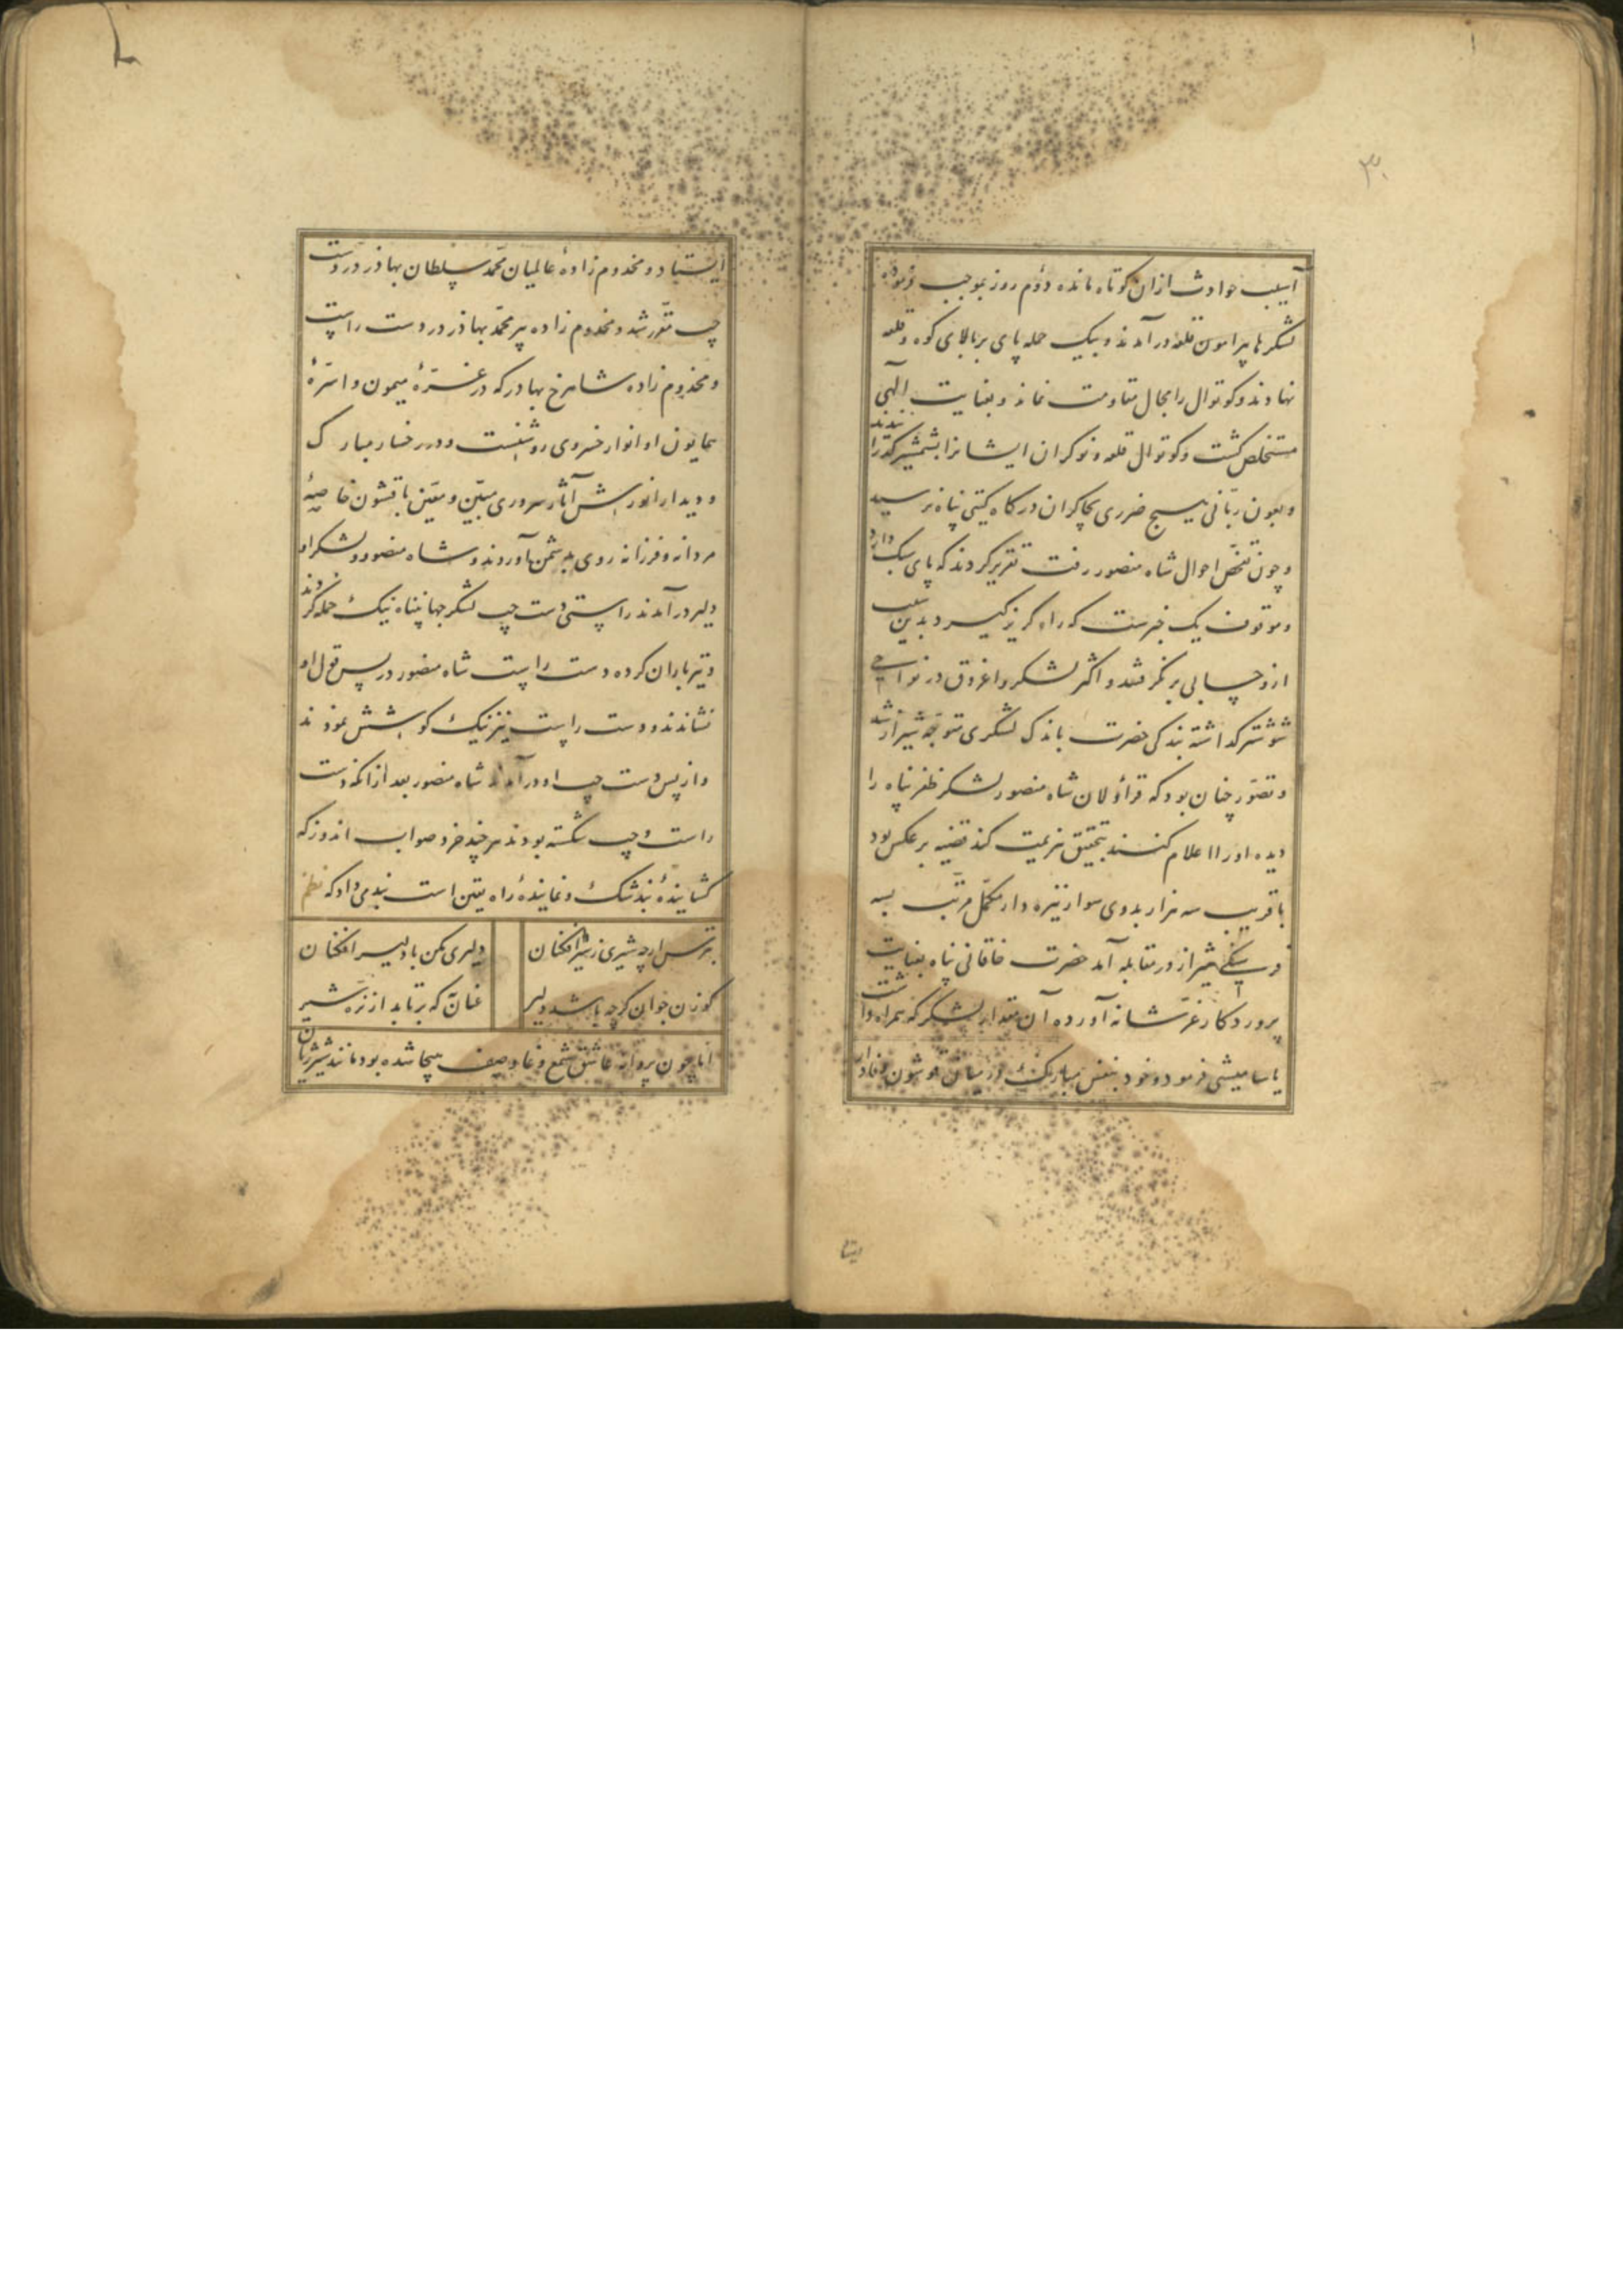 ۳۰
آسیب حوادث ازان کوتاه مانده دوّم روز بموجب فرموده
لشکرها پیرامون قلعه درآمدند و بیک حمله پای بر بالای کوه و قلعه
نهادند و کوتوال را مجال مقاومت نماند و بعنایت الهی
مستخلص کشت و کوتوال قلعه و نوکران ایشانرا بشمشیر کذرانیدند
و بعون ربّانی هیچ ضرری بچاکران درکاه کیتی پناه نرسید
و چون تفحّص احوال شاه منصور رفت تقریر کردند که پای سبک دارد
و موقوف یک خبرست که راه کریز کیرد بدین سبب
ازو حسابی برنکرفتند و اکثر لشکر و اغروق در نواحی
شوشتر کذاشته بندکی حضرت باندک لشکری متوجّه شیراز شد
و تصوّر چنان بود که قراولان شاه منصور لشکر ظفر پناه را
دیده او را اعلام کنند بتحقیق هزیمت کند قضیه بر عکس بود
با قریب سه هزار بدوی سوار نیزه دار مکمّل مرتّب بسه
فرسنکی شیراز در مقابله آمد حضرت خاقانی پناه بعنایت
پروردکار عزّ شانه آورده آن مقدار لشکر که همراه داشت
یاسامیشی فرمود و خود بنفس مبارک در میان قوشون وفادار
ایستاد
ایستاد و مخدوم زادهٔ عالمیان محمّد سلطان بهادر در دست
چپ مقرّر شد و مخدوم زاده پیر محمّد بهادر در دست راست
و مخدوم زاده شاهرخ بهادر که در غرّهٔ میمون و اسرّهٔ
همایون او انوار خسروی روشنست و در رخسار مبارک
و دیدار انورش آثار سروری مبیّن و معیّن با قشون خاصهٔ
مردانه و فرزانه روی بدشمن آوردند و شاه منصور و لشکر او
دلیر درآمدند راستی دست چپ لشکر جهانپناه نیک حمله کردند
و تیرباران کرده دست راست شاه منصور در پس قول او
نشاندند و دست راست نیز نیک کوشش نمودند
و از پس دست چپ او درآمدند شاه منصور بعد ازانکه دست
راست و چپ شکسته بودند هرچند خرد صواب اندوز که
کشایندهٔ بند شک و نمایندهٔ راه یقین است بندمی داد که نظم
بترس ارچه شیری ز شیر افکنان دلیری مکن با دلیر افکنان
کوزن جوان کرچه باشد دلیر عنان که برتابد از نرّه شیر
امّا چون پروانه عاشق شمع وغا و صف هیجا شده بود مانند شیر ژیان